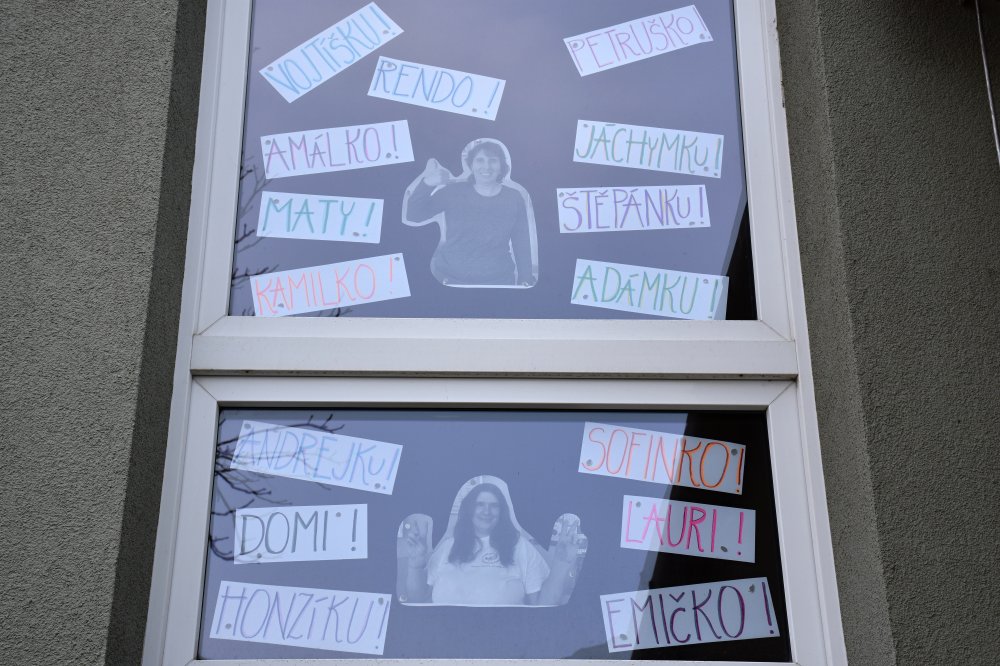 VOJTÍŠKU!
RENDO!
PETRUŠKO!
AMÁLKO!
JÁCHYMKU!
MATY!
ŠTĚPÁNKU!
KAMILKO!
ADÁMKU!
ANDREJKU!
SOFINKO!
DOMI!
LAURI!
HONZÍKU!
EMIČKO!